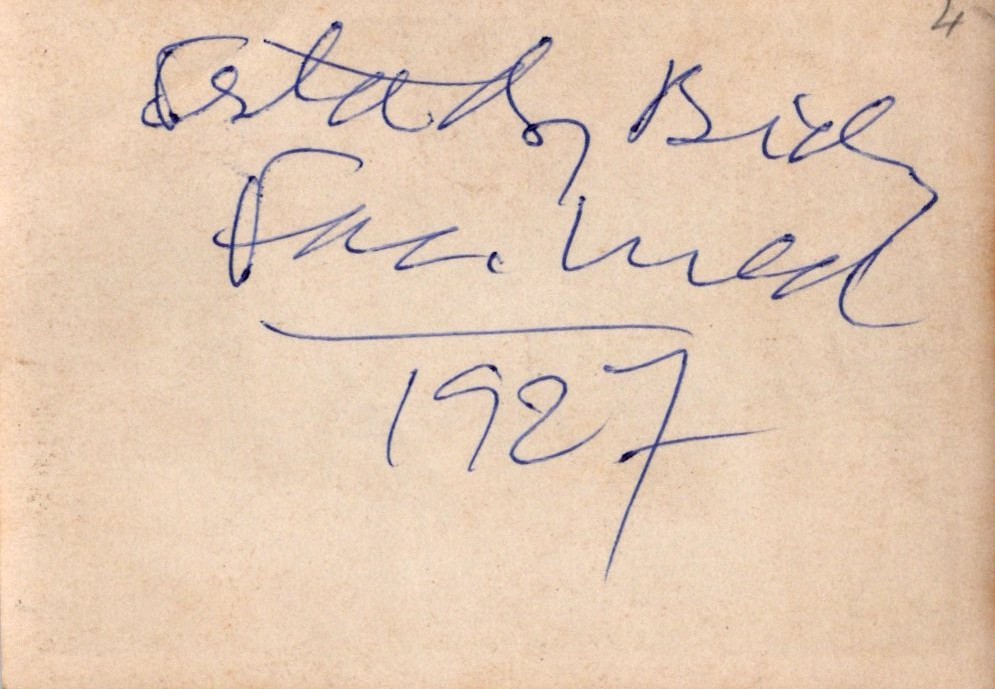 4
Estado Biol
Fac. Med
1927